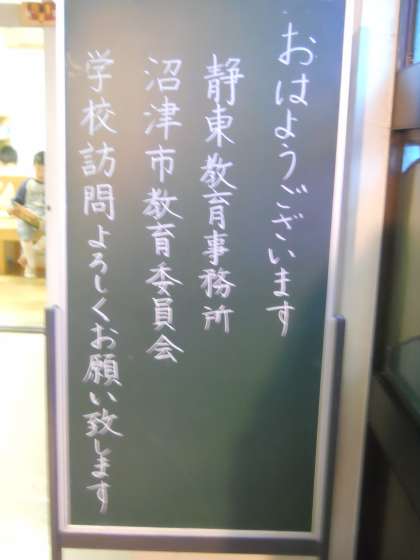 おはようございます
静東教育事務所
沼津市教育委員会
学校訪問よろしくお願い致します